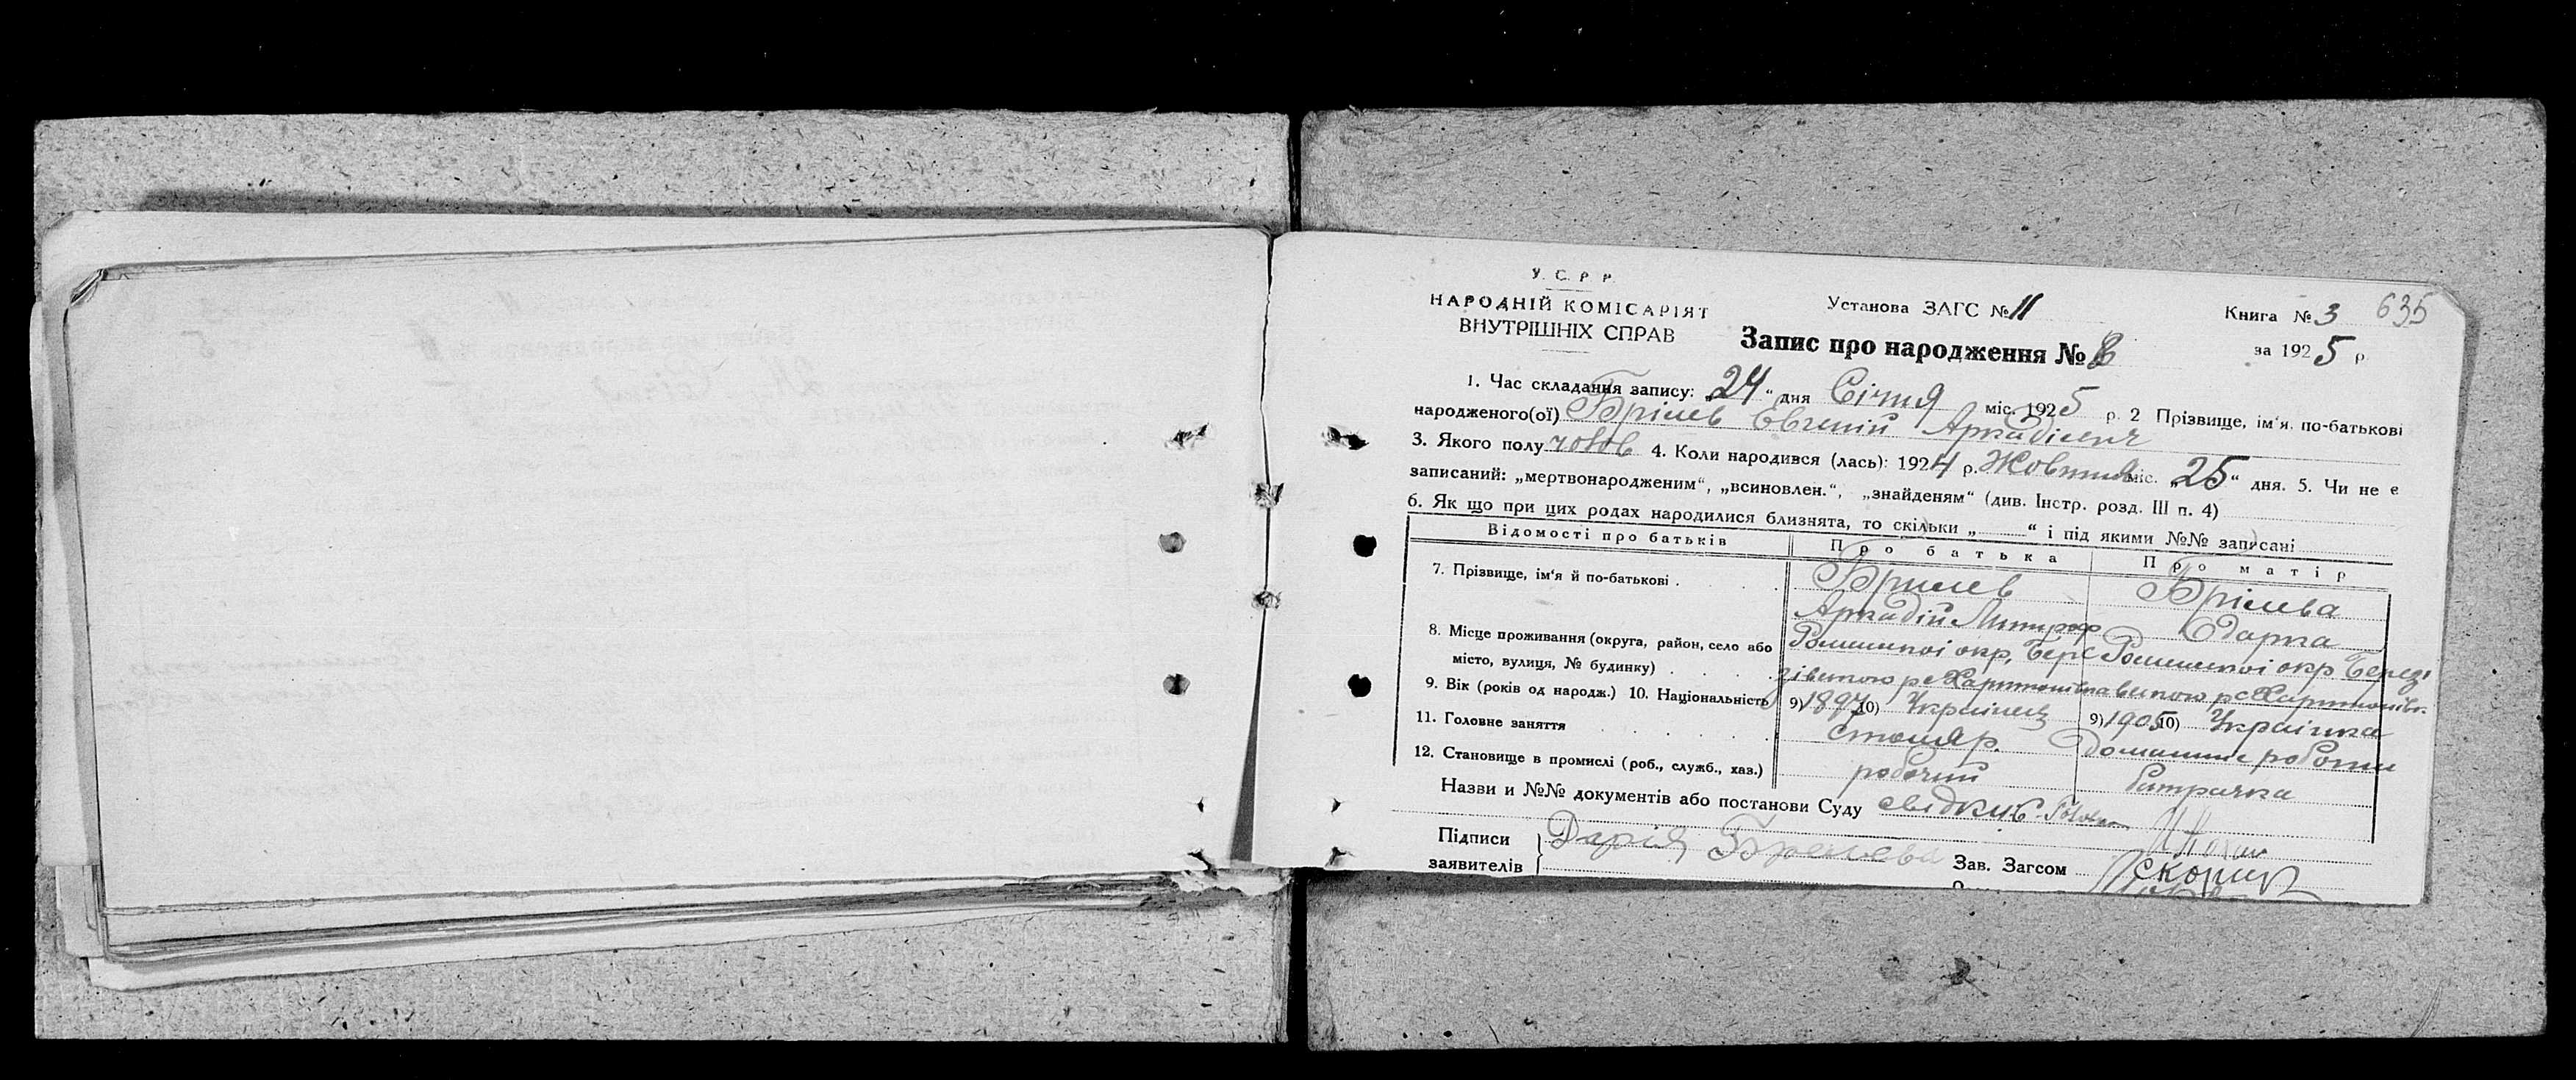 У. С. Р. Р.
НАРОДНІЙ КОМІСАРІЯТ
ВНУТРІШНІХ СПРАВ
Установа ЗАГС № 11
Книга № 3 635
Запис про народження № 8
за 1925 р
1. Час складання запису: „24“ дня Січня міс. 1925 р. 2 Прізвище, ім'я, по-батькові
народженого(ої) Брілев Евгений Аркадіевич
3. Якого полу чолов 4. Коли народився (лась): 1924 р. Жовтня міс. „25“ дня. 5. Чи не є
записаний: „мертвонародженим“, „всиновлен.“, „знайденям“ (див. Інстр. розд. III п. 4)
6. Як що при цих родах народилися близнята, то скільки „ “ і під якими №№ записані
Відомості про батьків Про батька Про матір
7. Прізвище, ім'я й по-батькові . Брилев Брілева
Аркадій Митроф Одарка
8. Місце проживання (округа, район, село або Роменскої окр, Бере Роменскої окр Березі
місто, вулиця, № будинку) . зівского р с Харитонівка вского р с Харитонівк
9. Вік (років од народж.) 10. Національність 9) 1897 10) Українец 9) 1905 10) Українка
11. Головне заняття столяр. домашне роботи
12. Становище в промислі (роб., служб., хаз.) робочий
Назви и №№ документів або постанови Суду
Підписи Дарія Брелева
заявителів Зав. Загсом